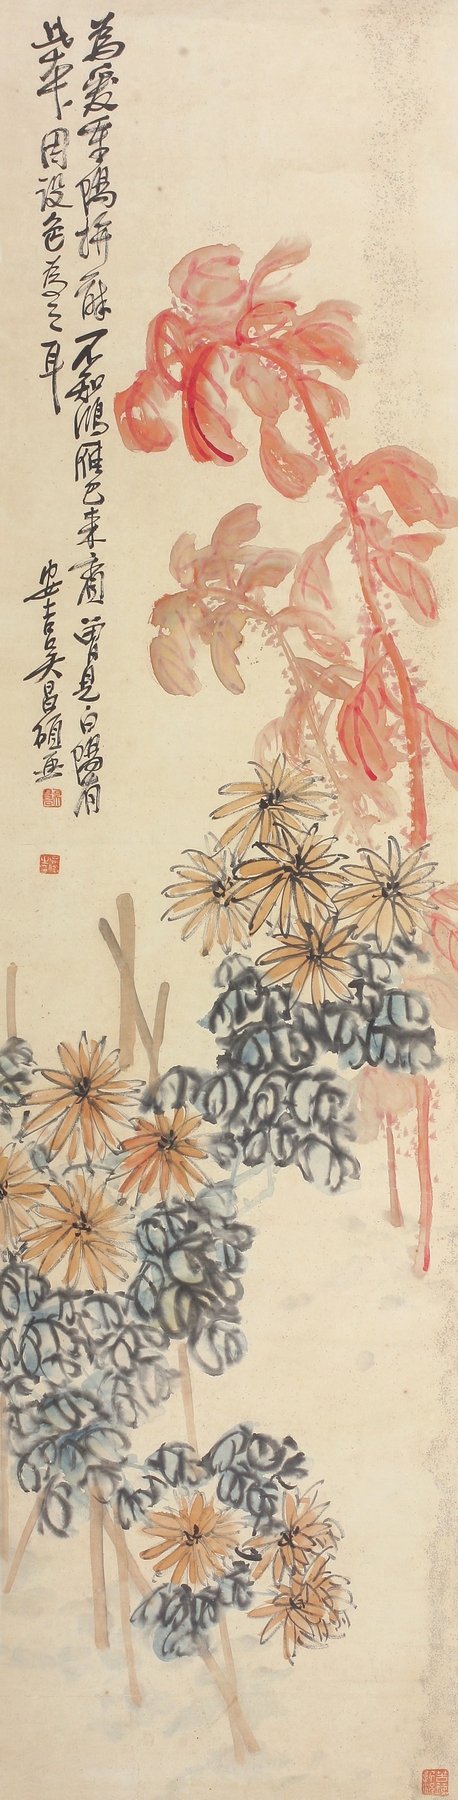 為愛東陽拚醉不知鴻雁已来賓曾見白陽有
此本因設色為之耳
安吉吳昌碩画